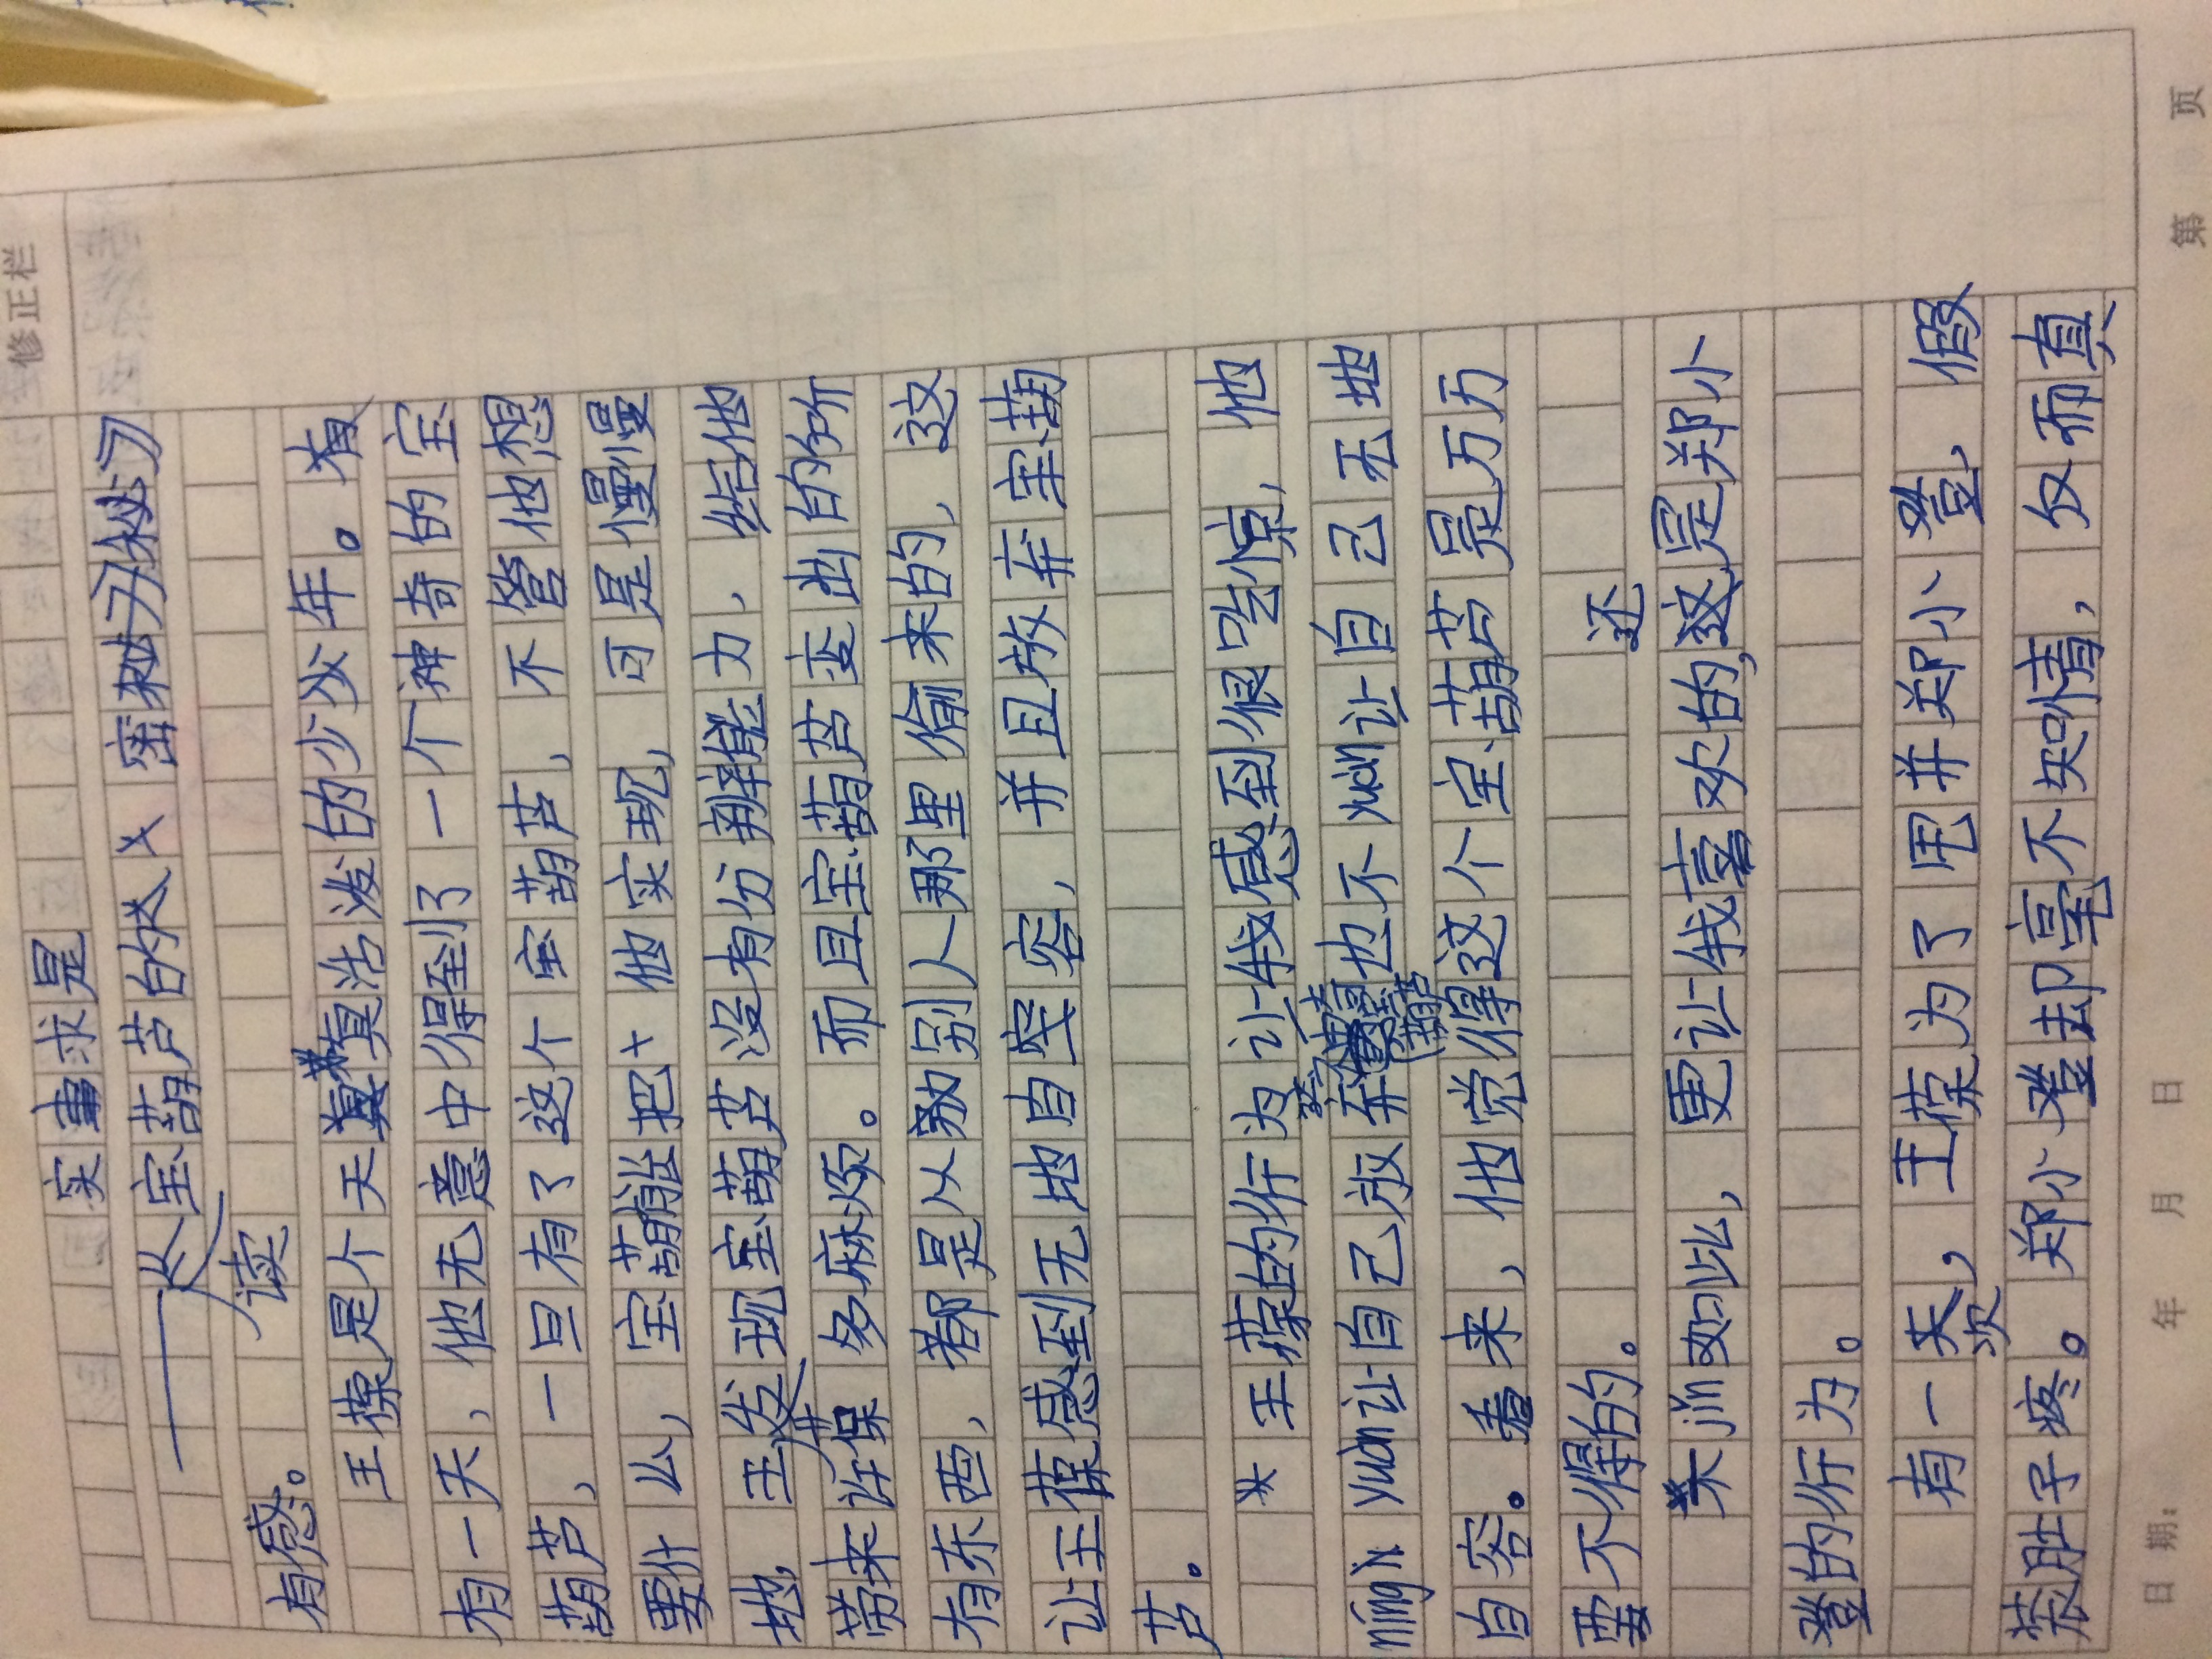 修正栏
实事求是
——从《宝葫芦的秘密》
读
有感。
王葆是个天真活泼的少年。有
有一天，他无意中得到了一个神奇的宝
葫芦，一旦有了这个宝葫芦，不管他想
要什么，宝葫芦把他实现，可是慢慢
地，王葆发现宝葫芦没有分辨能力，给他
带来许多麻烦。而且宝葫芦变出的所
有东西，都是从别人那里偷来的，这
让王葆感到无地自容，并且放弃宝葫
芦。
王葆的行为让我感到很吃惊，他
nìng yuàn让自己放弃宝葫芦也不yuàn让自己无地
自容。看来，他觉得这个宝葫芦是万万
要不得的。
不jǐn如此，更让我喜欢的，还是郑小
登的行为。
有一次，王葆为了甩开郑小登，假
装肚子疼。郑小登却毫不知情，反而真
日期： 年 月 日 第 页